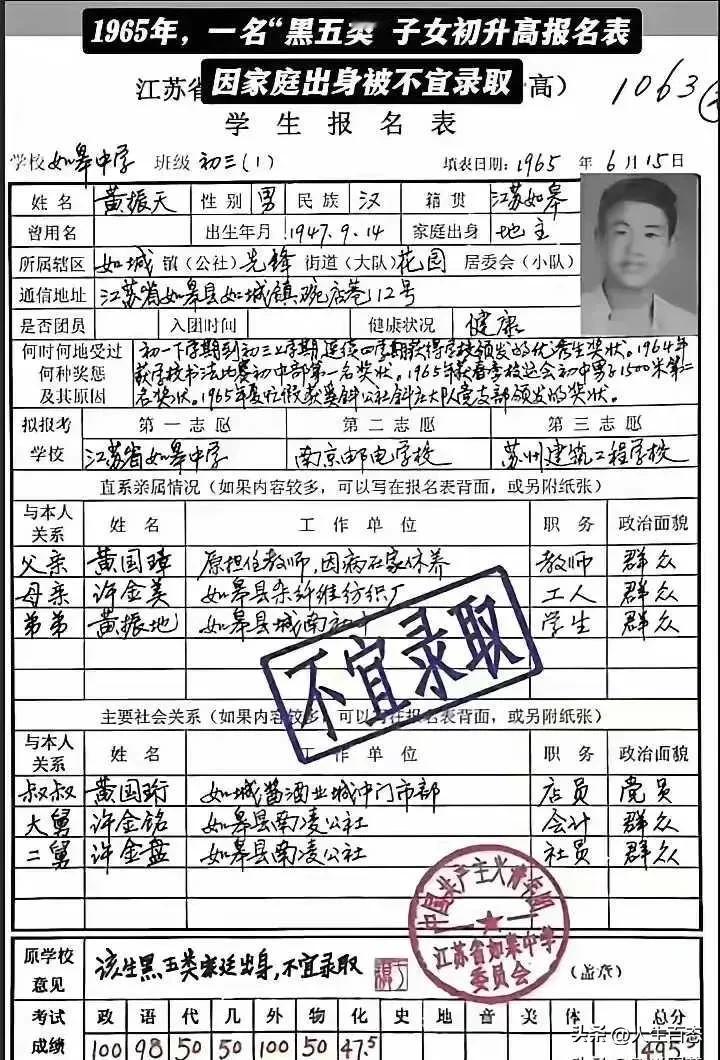 1965年，一名“黑五类 子女初升高报名表
因家庭出身被不宜录取
江苏省 高）
1063
学生报名表
学校 如皋中学 班级 初三（1） 填表日期：1965 年 6月15日
姓名 黄振天 性别 男 民族 汉 籍贯 江苏如皋
曾用名 出生年月 1947.9.14 家庭出身 地主
所属辖区 如城 镇（公社）先锋 街道（大队）花园 居委会（小队）
通信地址 江苏省如皋县如城镇碗店巷12号
是否团员 入团时间 健康状况 健康
何时何地受过何种奖惩及其原因
初一下学期到初三上学期连续四学期获得学校颁发的优秀生奖状。1964年
获学校书法比赛初中部第一名奖状。1965年获春季校运会初中男子1500米第二
名奖状。1965年夏忙假获 公社 大队党支部颁发的奖状。
拟报考学校 第一志愿 第二志愿 第三志愿
江苏省如皋中学 南京邮电学校 苏州建筑工程学校
直系亲属情况（如果内容较多，可以写在报名表背面，或另附纸张）
与本人关系 姓名 工作单位 职务 政治面貌
父亲 黄国璋 原担任教师，因病在家休养 教师 群众
母亲 许金美 如皋县杂纤维纺织厂 工人 群众
弟弟 黄振地 如皋县城南初中 学生 群众
不宜录取
主要社会关系（如果内容较多，可以写在报名表背面，或另附纸张）
与本人关系 姓名 工作单位 职务 政治面貌
叔叔 黄国珩 如城酱酒业城中门市部 店员 党员
大舅 许金铭 如皋县南凌公社 会计 群众
二舅 许金盘 如皋县南凌公社 社员 群众
中国共产主义青年团
江苏省如皋中学
委员会
原学校意见 该生黑五类家庭出身，不宜录取 （盖章）
考试 政 语 代 几 外 物 化 史 地 音 美 体 总分
成绩 100 98 50 50 100 50 47.5 495.5
头条 @人生百态